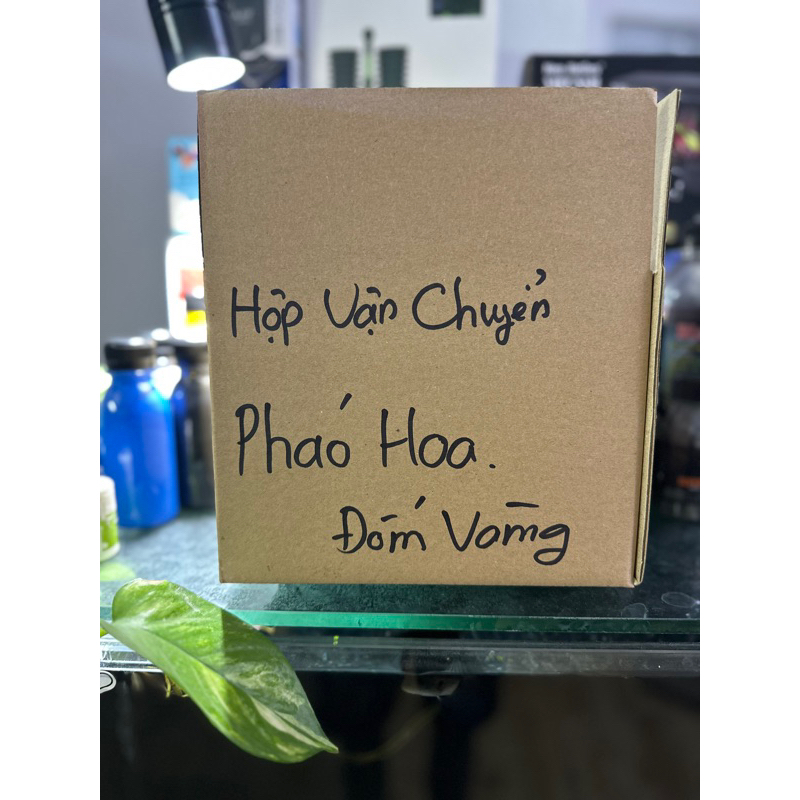 Hộp Vận Chuyển
Pháo Hoa.
Đóm Vàng